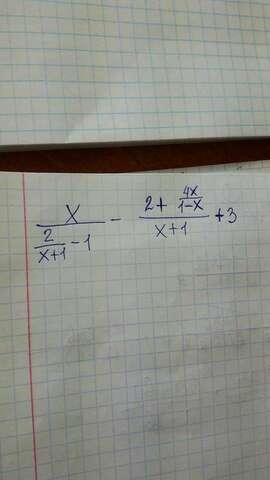 x / (2/(x+1) - 1) - (2 + 4x/(1-x)) / (x+1) + 3